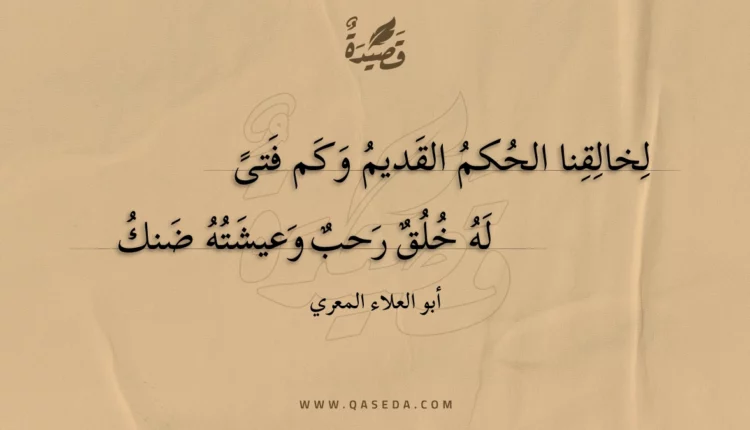 قَصِيدَةٌ
لِخالِقِنا الحُكمُ القَديمُ وَكَم فَتىً
لَهُ خُلُقٌ رَحبٌ وَعيشَتُهُ ضَنكُ
أبو العلاء المعري
WWW.QASEDA.COM